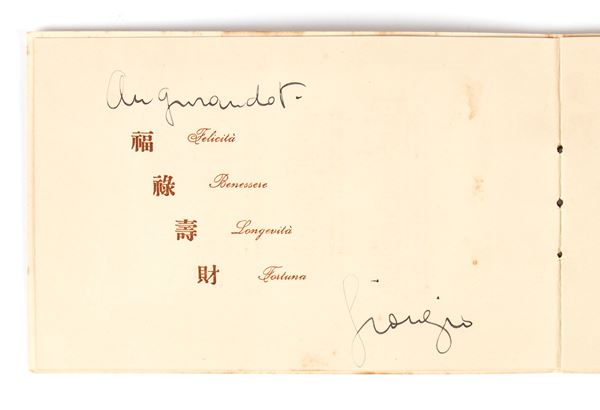 Augurandoti
福 Felicità
祿 Benessere
壽 Longevità
財 Fortuna
Giorgio